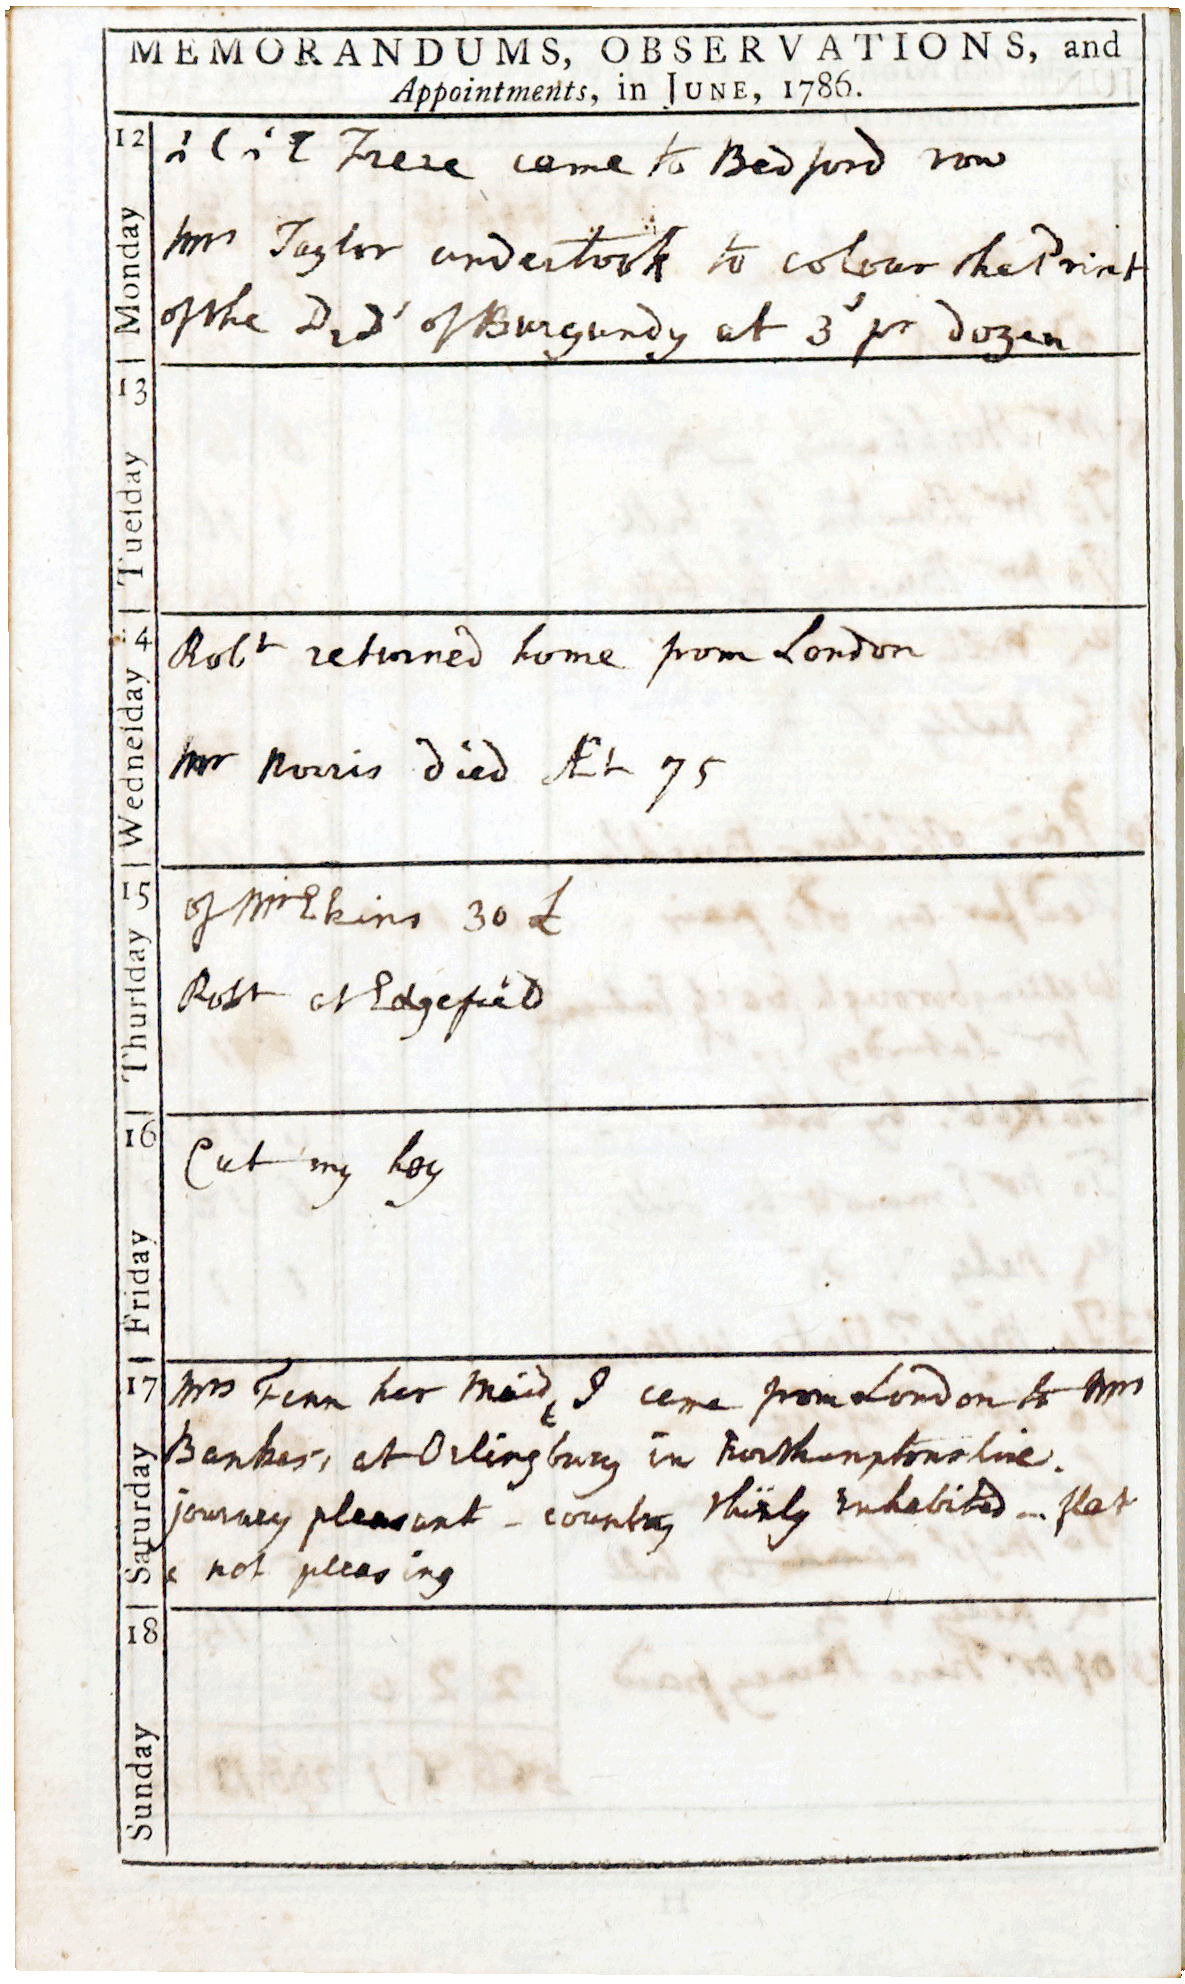 MEMORANDUMS, OBSERVATIONS, and
Appointments, in JUNE, 1786.
12 Monday
Frere came to Bedford row
Mrs Taylor undertook to colour the Print
of the D, Ds of Burgundy at 3s pr dozen
13 Tuesday
4 Wednesday
Robt returned home from London
Mr Norris died Æt 75
15 Thursday
of Mr Ekins 30 £
Robt at Edgefield
16 Friday
Cut my hay
17 Saturday
Mrs Fenn her Maid & I came from London to Mrs
Bankes, at Orlingbury in Northamptonshire.
journey pleasant – country thinly inhabited – flat
& not pleasing
18 Sunday